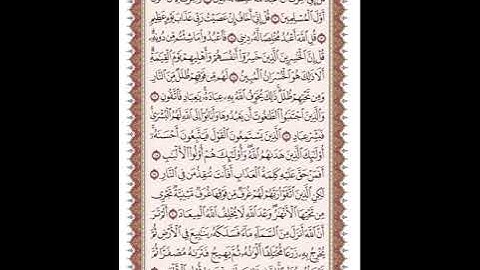 أَوَّلَ ٱلْمُسْلِمِينَ ۝ قُلْ إِنِّىٓ أَخَافُ إِنْ عَصَيْتُ رَبِّى عَذَابَ يَوْمٍ عَظِيمٍ
۝ قُلِ ٱللَّهَ أَعْبُدُ مُخْلِصًا لَّهُۥ دِينِى ۝ فَٱعْبُدُوا۟ مَا شِئْتُم مِّن دُونِهِۦ
قُلْ إِنَّ ٱلْخَـٰسِرِينَ ٱلَّذِينَ خَسِرُوٓا۟ أَنفُسَهُمْ وَأَهْلِيهِمْ يَوْمَ ٱلْقِيَـٰمَةِ
أَلَا ذَٰلِكَ هُوَ ٱلْخُسْرَانُ ٱلْمُبِينُ ۝ لَهُم مِّن فَوْقِهِمْ ظُلَلٌ مِّنَ ٱلنَّارِ
وَمِن تَحْتِهِمْ ظُلَلٌ ذَٰلِكَ يُخَوِّفُ ٱللَّهُ بِهِۦ عِبَادَهُۥ يَـٰعِبَادِ فَٱتَّقُونِ ۝
وَٱلَّذِينَ ٱجْتَنَبُوا۟ ٱلطَّـٰغُوتَ أَن يَعْبُدُوهَا وَأَنَابُوٓا۟ إِلَى ٱللَّهِ لَهُمُ ٱلْبُشْرَىٰ
فَبَشِّرْ عِبَادِ ۝ ٱلَّذِينَ يَسْتَمِعُونَ ٱلْقَوْلَ فَيَتَّبِعُونَ أَحْسَنَهُۥٓ
أُو۟لَـٰٓئِكَ ٱلَّذِينَ هَدَىٰهُمُ ٱللَّهُ وَأُو۟لَـٰٓئِكَ هُمْ أُو۟لُوا۟ ٱلْأَلْبَـٰبِ ۝
أَفَمَنْ حَقَّ عَلَيْهِ كَلِمَةُ ٱلْعَذَابِ أَفَأَنتَ تُنقِذُ مَن فِى ٱلنَّارِ ۝
لَـٰكِنِ ٱلَّذِينَ ٱتَّقَوْا۟ رَبَّهُمْ لَهُمْ غُرَفٌ مِّن فَوْقِهَا غُرَفٌ مَّبْنِيَّةٌ تَجْرِى
مِن تَحْتِهَا ٱلْأَنْهَـٰرُ وَعْدَ ٱللَّهِ لَا يُخْلِفُ ٱللَّهُ ٱلْمِيعَادَ ۝ أَلَمْ تَرَ
أَنَّ ٱللَّهَ أَنزَلَ مِنَ ٱلسَّمَآءِ مَآءً فَسَلَكَهُۥ يَنَـٰبِيعَ فِى ٱلْأَرْضِ ثُمَّ
يُخْرِجُ بِهِۦ زَرْعًا مُّخْتَلِفًا أَلْوَٰنُهُۥ ثُمَّ يَهِيجُ فَتَرَىٰهُ مُصْفَرًّا ثُمَّ